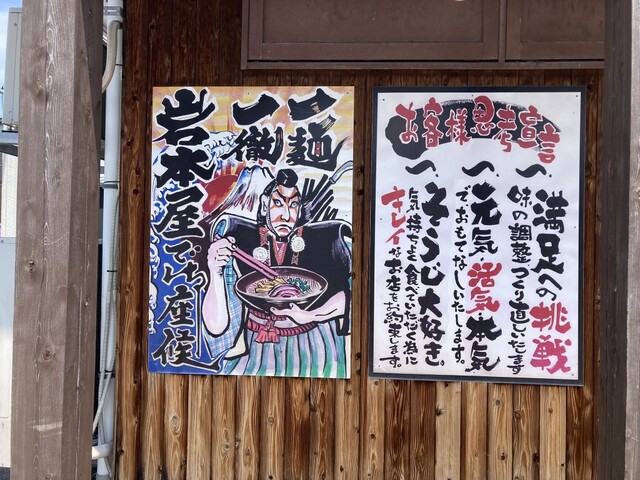 一麺
一徹
岩本屋でい
座候
お客様思考宣言
一、満足への挑戦
味の調整、つくり直しいたします
一、元気・活気・本気
でおもてなしいたします。
一、そうじ大好き。
気持ちよく食べていただく為に
キレイなお店をお約束します。